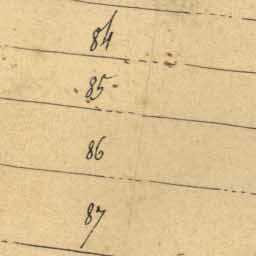 84
85
86
87